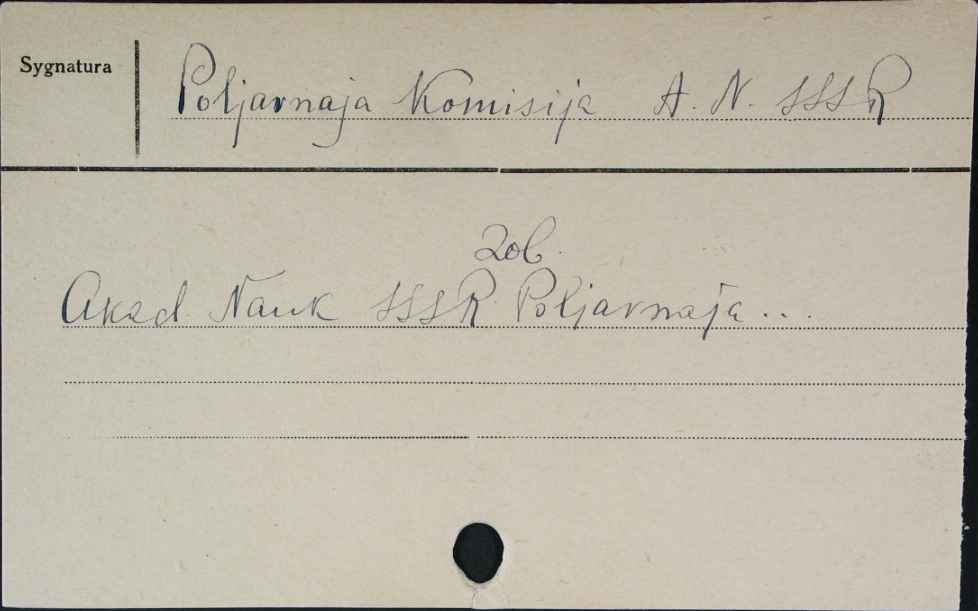 Sygnatura
Poljarnaja Komisija A. N. SSSR
Zob.
Akad. Nauk SSSR. Poljarnaja...